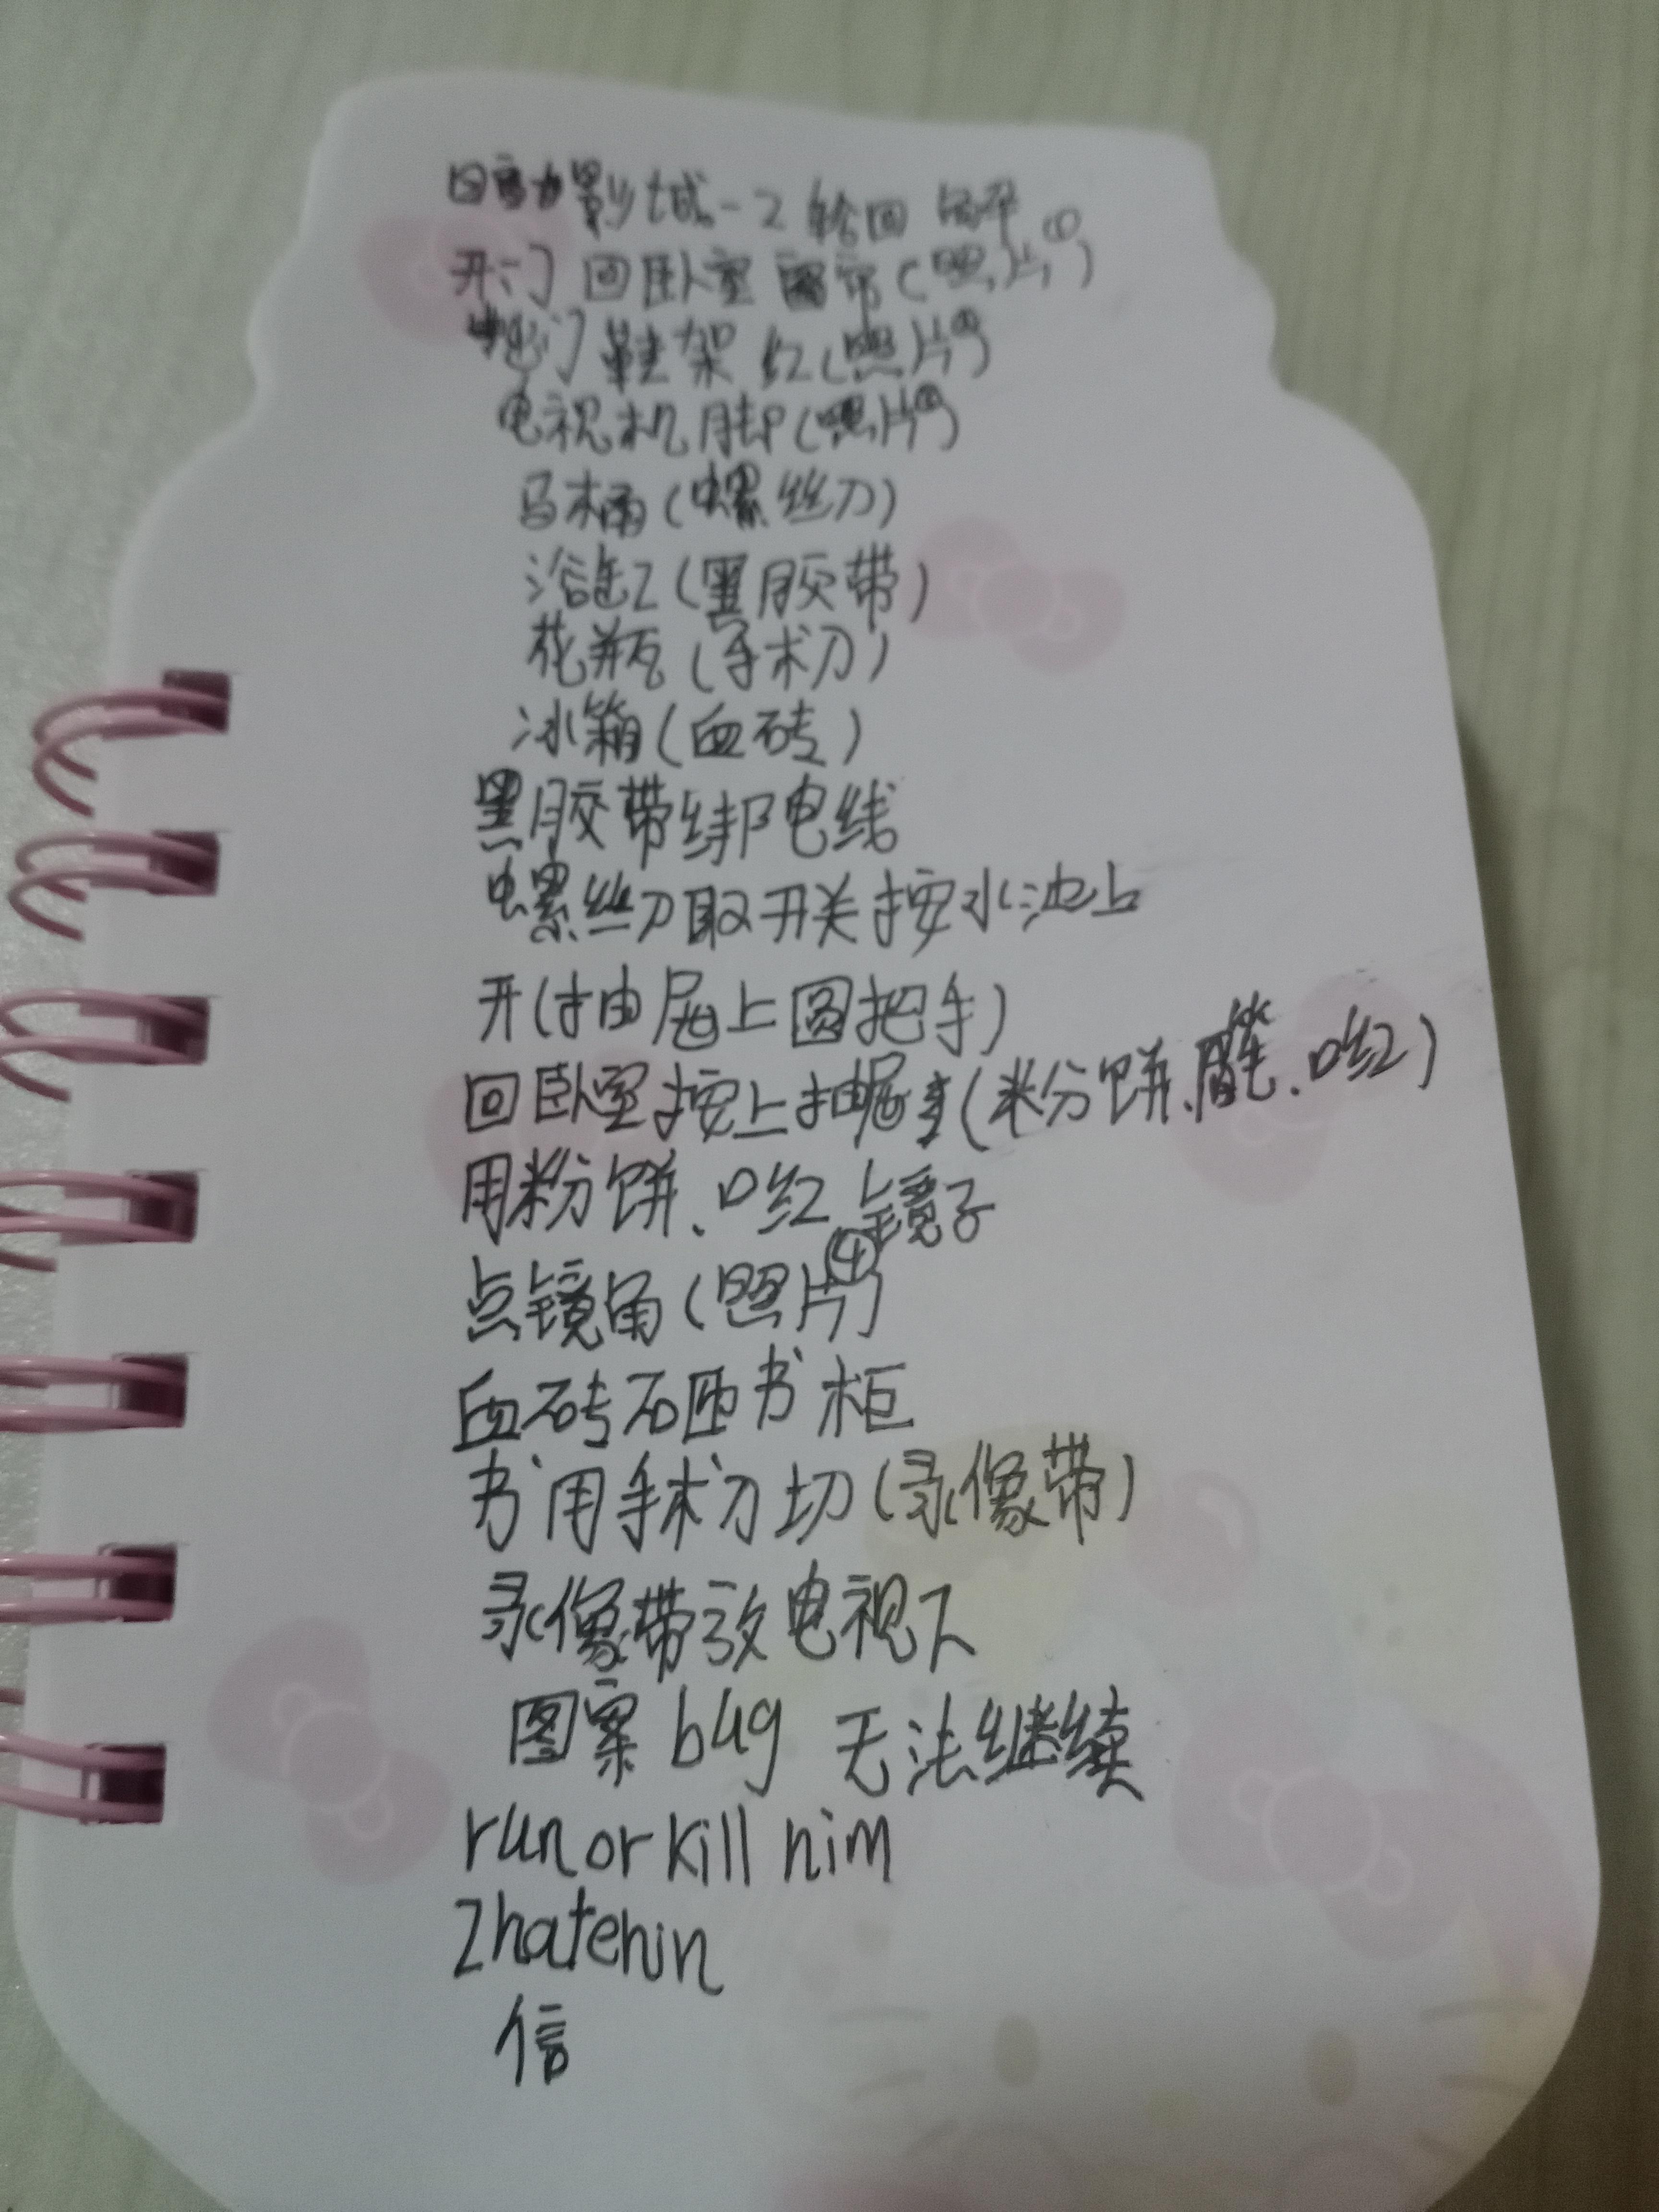 影城-2 轮回
开门 回卧室 窗帘(照片①)
门 鞋架 红(照片②)
电视机脚(照片③)
马桶(螺丝刀)
浴缸(黑胶带)
花瓶(手术刀)
冰箱(血砖)
黑胶带绑电线
螺丝刀取开关按水池上
开(抽屉上圆把手)
回卧室按上抽屉拿(粉饼、口红)
用粉饼、口红 镜子
点镜角(照片④)
血砖砸书柜
书用手术刀切(录像带)
录像带放电视下
图案 bug 无法继续
run or kill him
Zhatehin
信